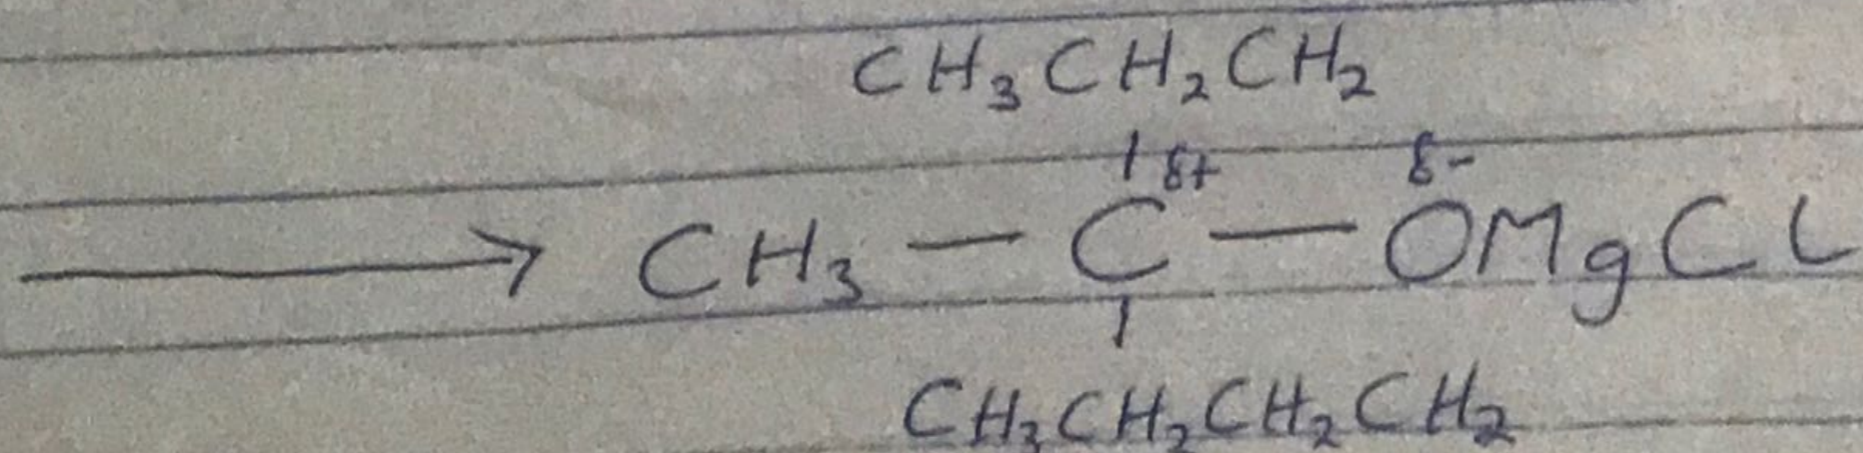 CH₃CH₂CH₂
| δ+ δ-
⟶ CH₃ — C — OMgCl
|
CH₃CH₂CH₂CH₂